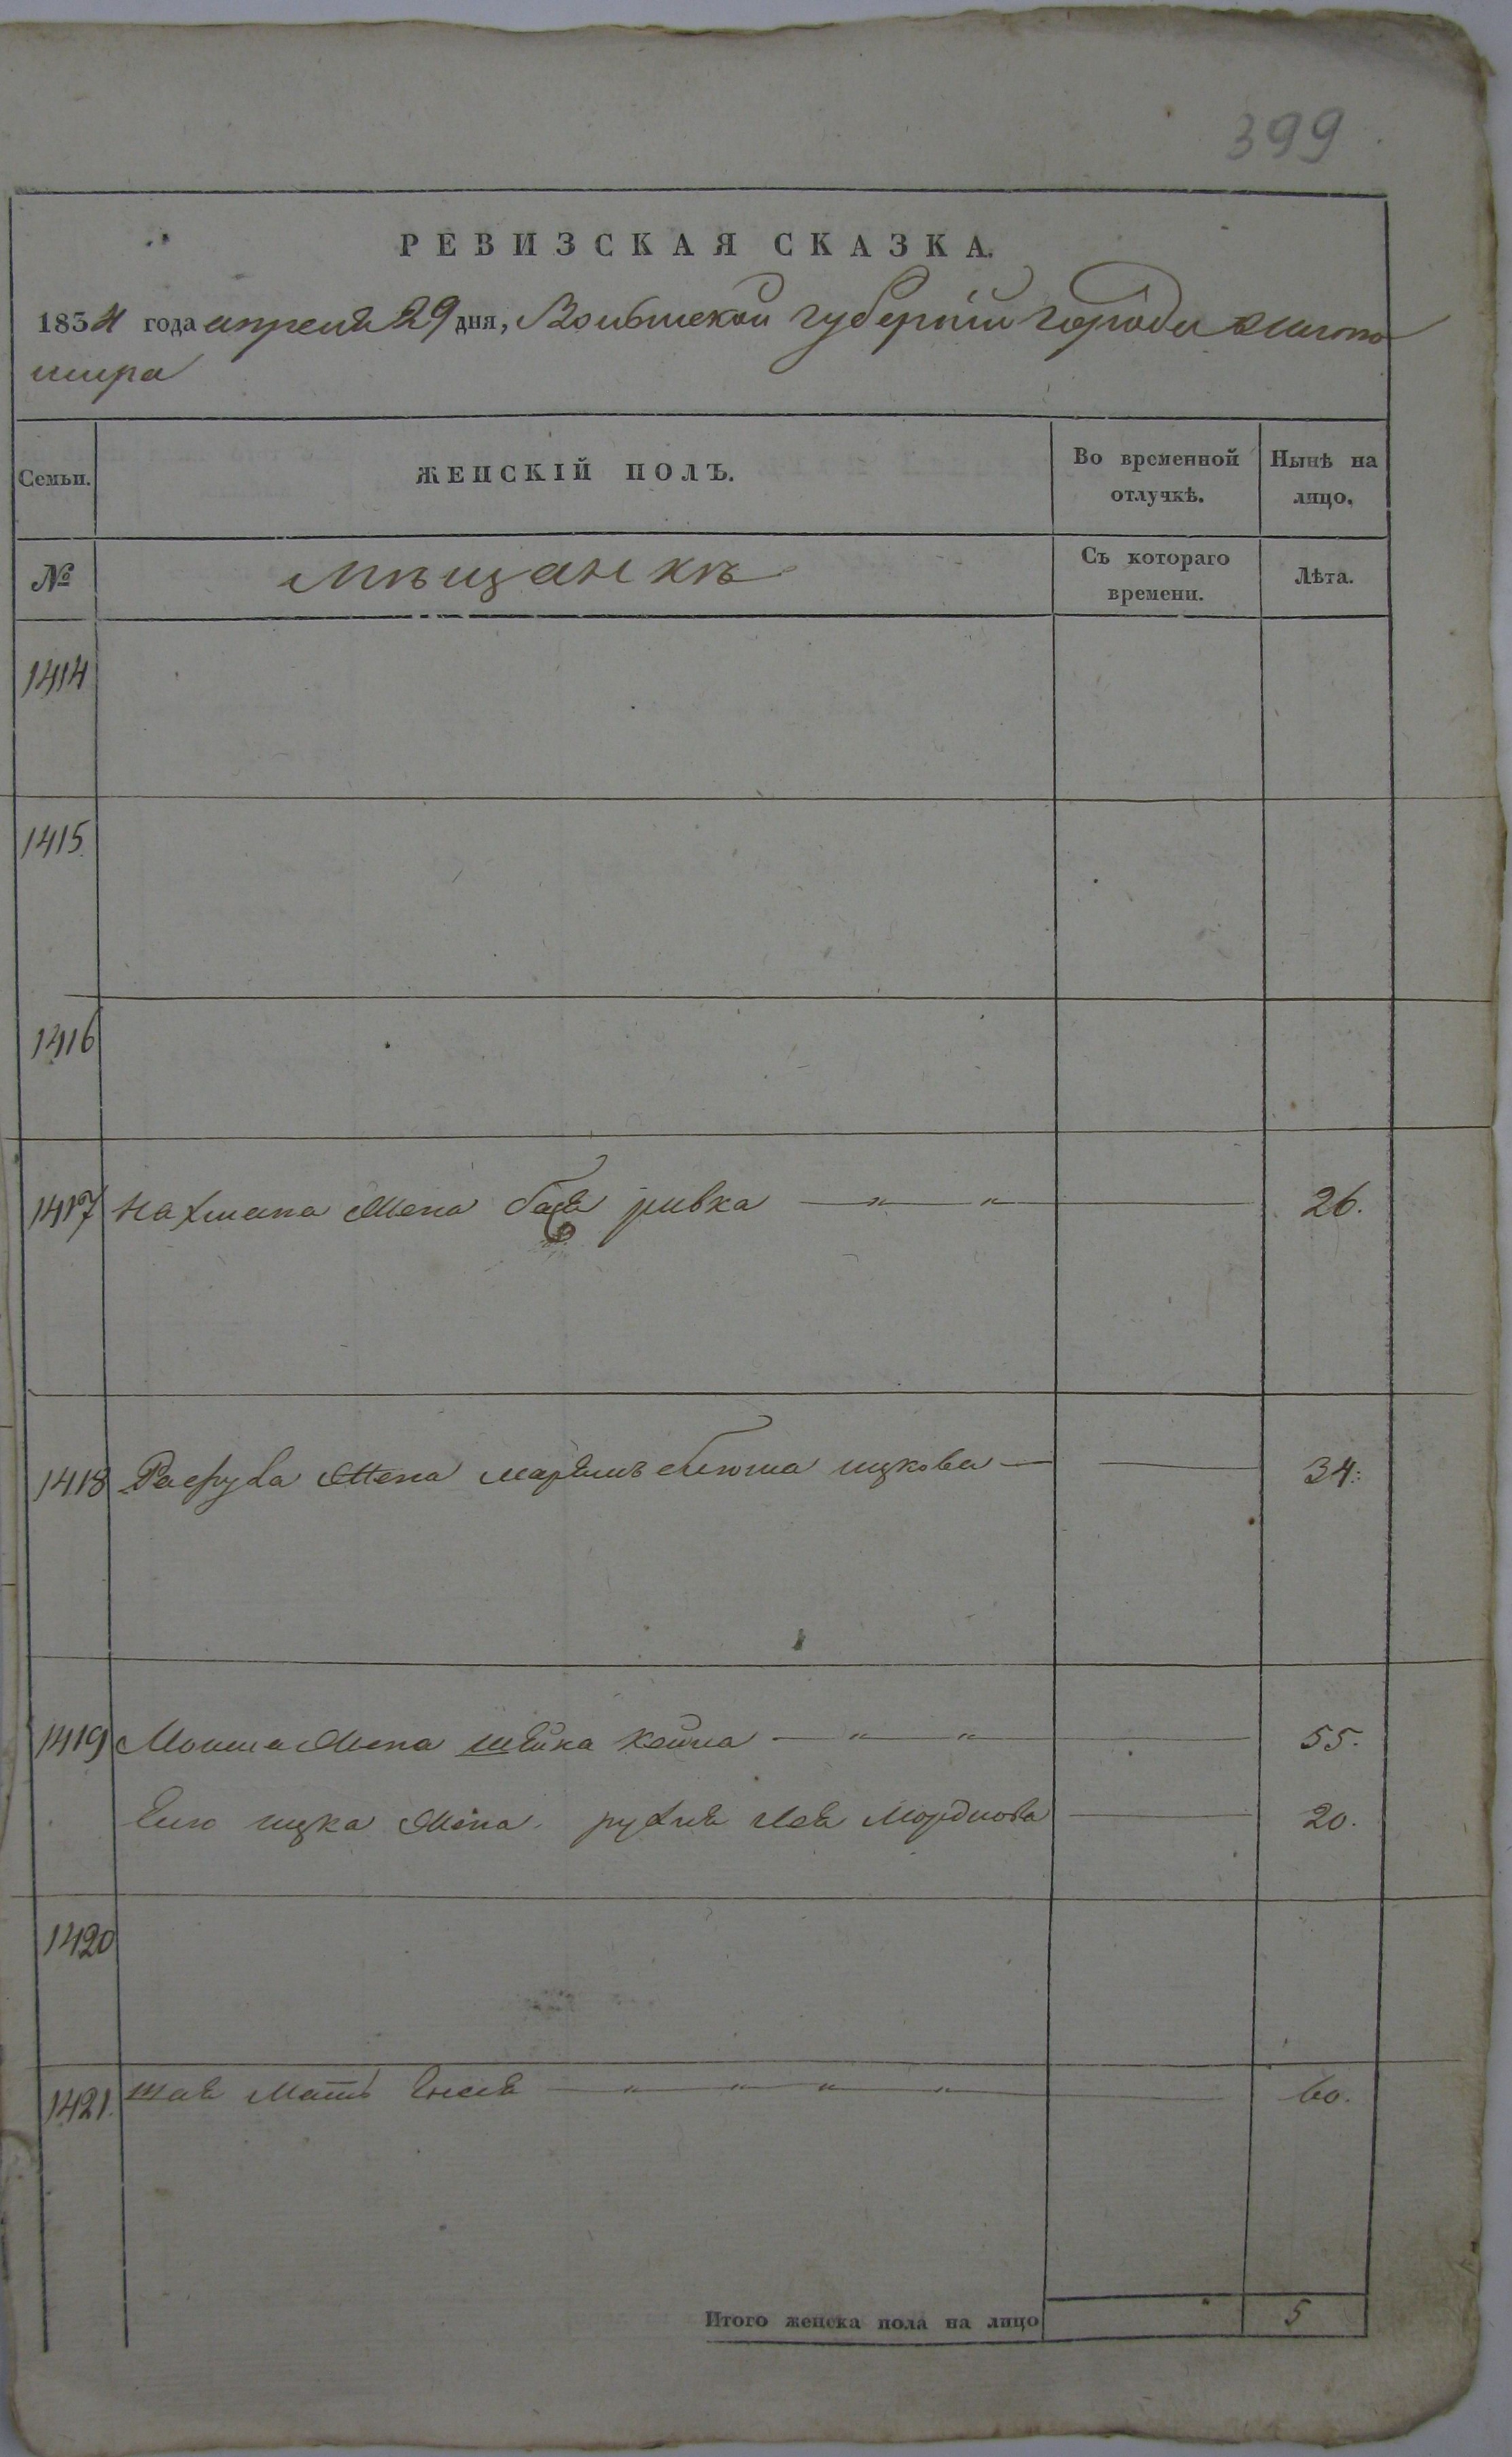 399
РЕВИЗСКАЯ СКАЗКА.
1834 года апреля 29 дня, Волынской губернии города Жито
мира
Семьи. ЖЕНСКІЙ ПОЛЪ. Во временной отлучкѣ. Нынѣ на лицо.
№ мѣщанкѣ Съ котораго времени. Лѣта.
1414
1415
1416
1417 Нахмана Жена бася ривка — „ — „ — 26.
1418 Жена Марьямъ ицкова — 34.
1419 Мошка Жена Шейка — „ — „ — 55.
Ево ицка Жена рухля Лея Мордкова — 20.
1420
1421. Мать — „ — „ — „ — „ — 60.
Итого женска пола на лицо 5